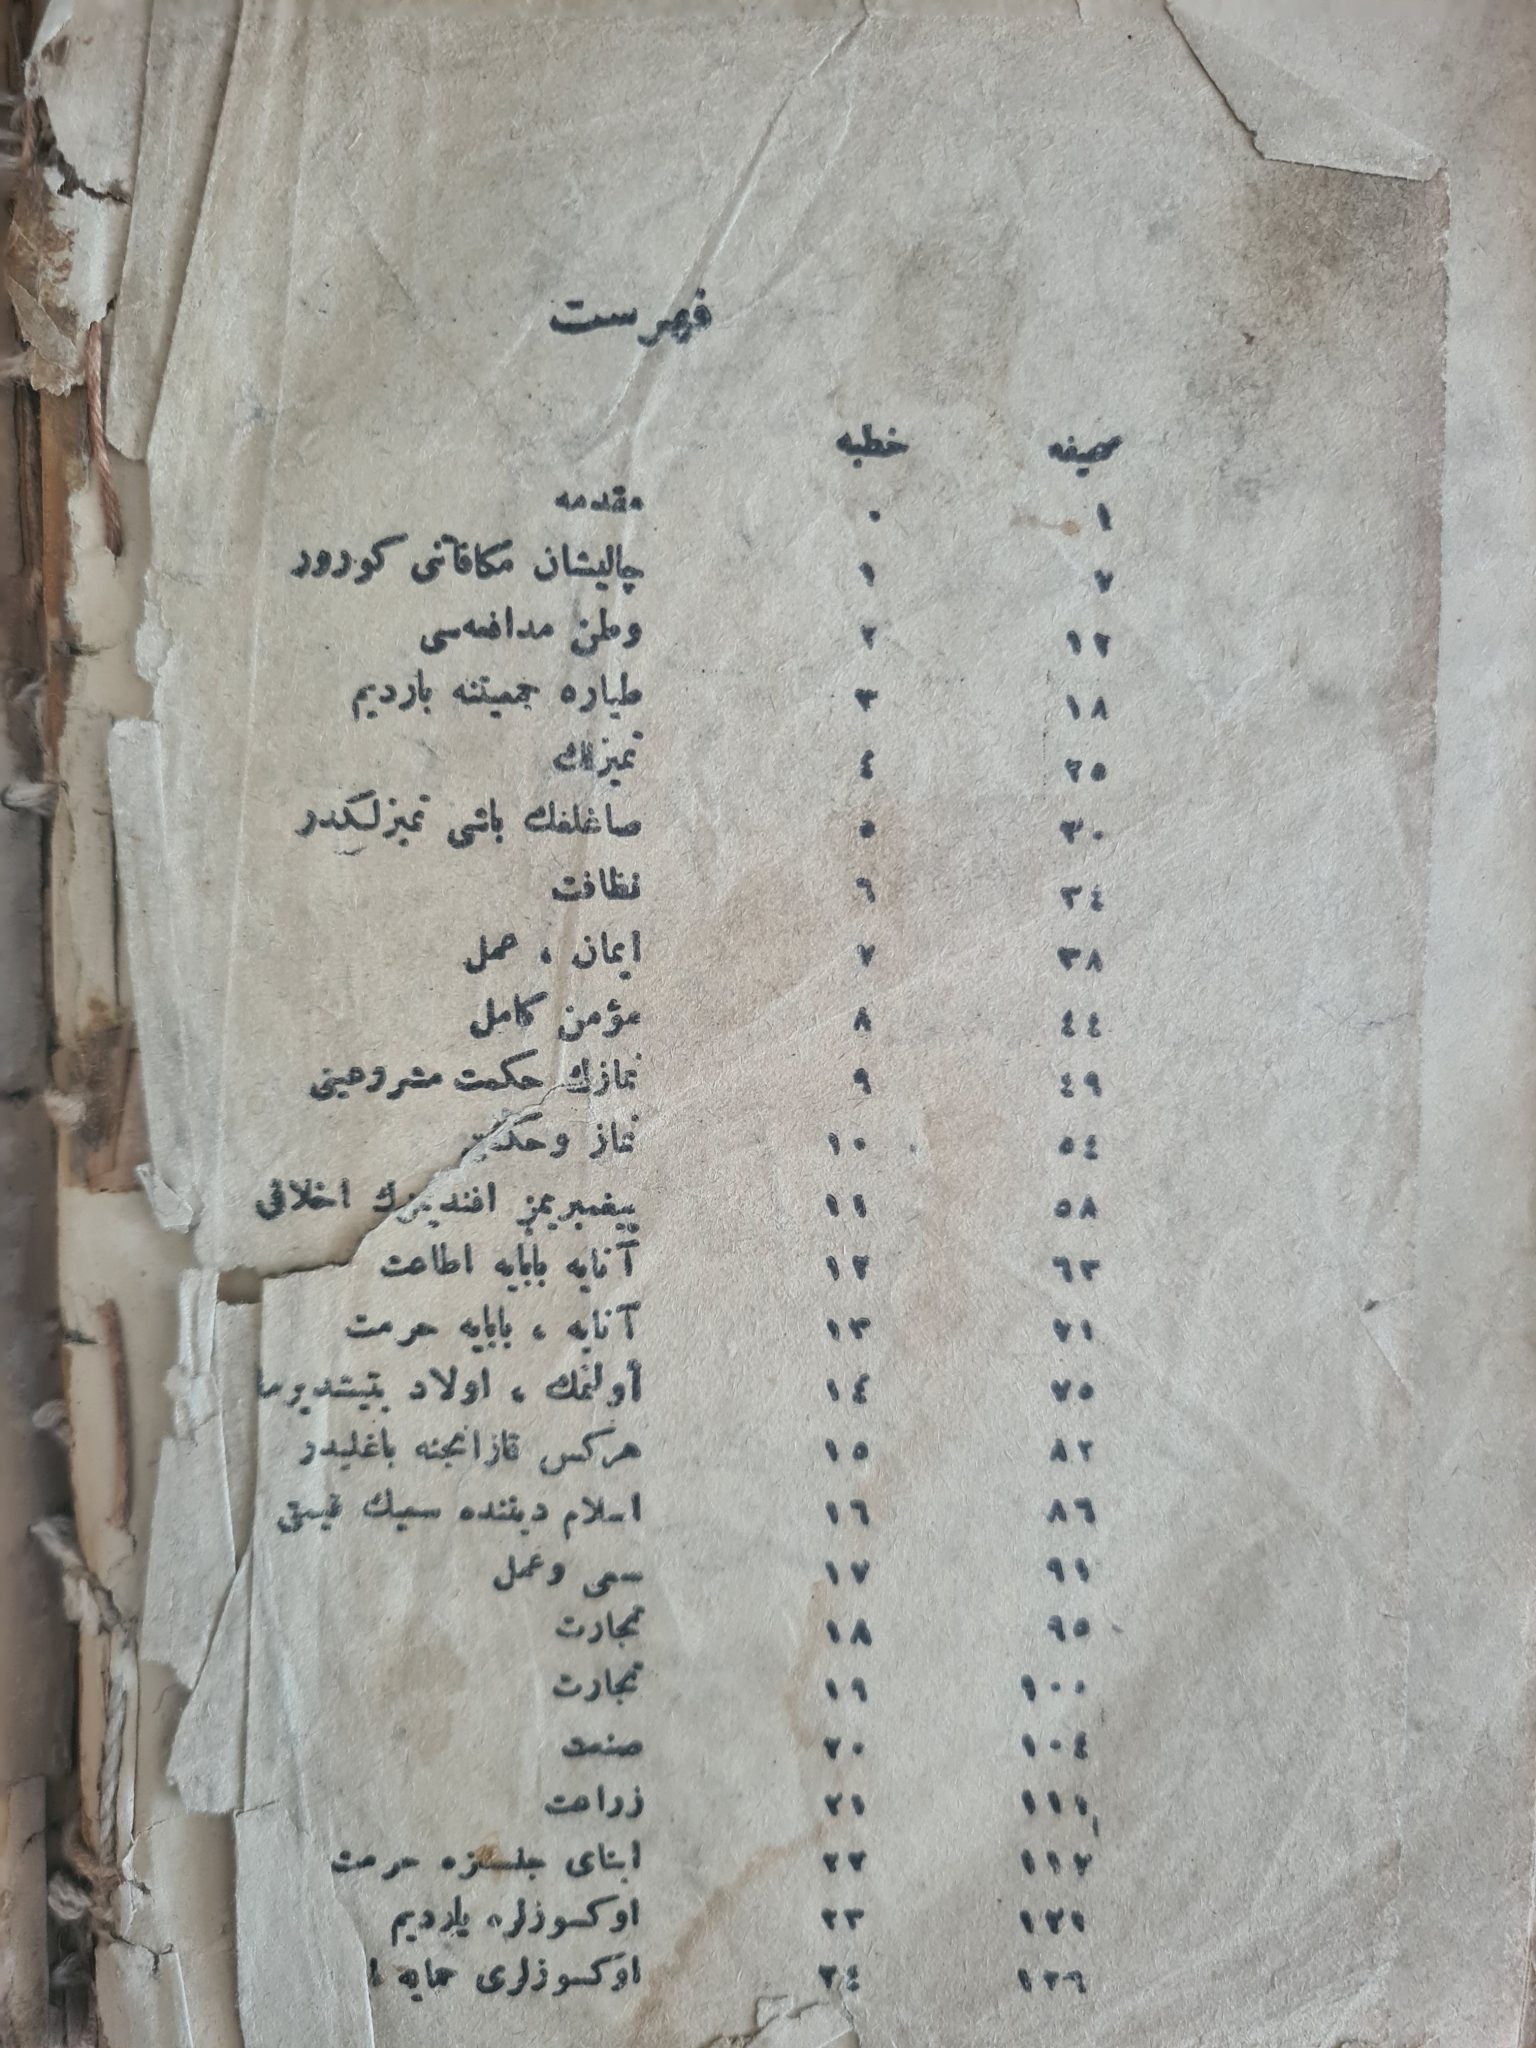 فهرست
صحيفه خطبه
١ ٠ مقدمه
٧ ١ چاليشان مكافآتى كورور
١٢ ٢ وطن مدافعه‌سى
١٨ ٣ طياره جمعيتنه ياردیم
٢٥ ٤ تميزلك
٣٠ ٥ صاغلغك باشى تميزلكدر
٣٤ ٦ نظافت
٣٨ ٧ ايمان ، عمل
٤٤ ٨ مؤمن كامل
٤٩ ٩ نمازك حكمت مشروعيتى
٥٤ ١٠ نماز وحكمتى
٥٨ ١١ پيغمبريمز افنديمزك اخلاقى
٦٣ ١٢ آنايه بابايه اطاعت
٧١ ١٣ آنايه ، بابايه حرمت
٧٥ ١٤ أولنمك ، اولاد يتيشديرمك
٨٢ ١٥ هركس قازانجنه باغليدر
٨٦ ١٦ اسلام ديننده سعيك قيمتى
٩١ ١٧ سعى وعمل
٩٥ ١٨ تجارت
١٠٠ ١٩ تجارت
١٠٤ ٢٠ صنعت
١١١ ٢١ زراعت
١١٧ ٢٢ ابناى جنسمزه حرمت
١٢١ ٢٣ اوكسوزلره ياردیم
١٢٦ ٢٤ اوكسوزلرى حمايه